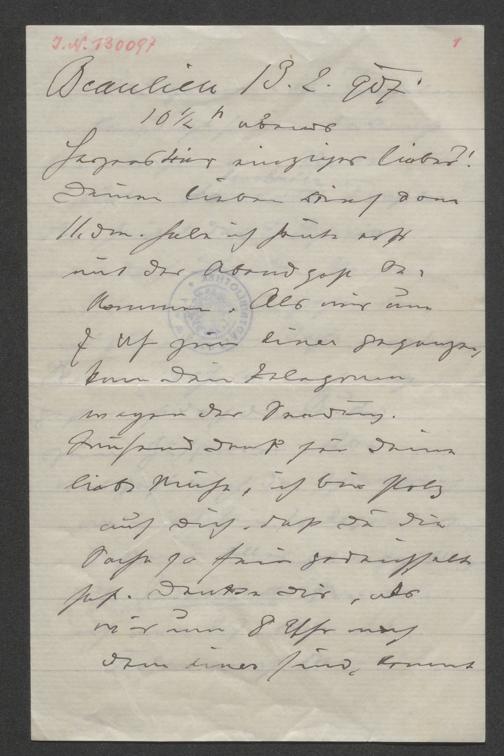 J.N. 130097
1
Beaulieu 13. 2. 907.
10 ½ h abends
einziger lieber!
Deinen lieben Brief vom
11. dM. habe ich heute erst
mit der Abendpost be-
kommen. Als wir um
7 Uhr zum Diner gegangen,
kam Dein Telegramm
wegen der Sendung.
Tausend Dank für Deine
liebe Mühe, ich bin stolz
auf Dich, daß Du die
Sache so fein gedeichselt
hast. Denke Dir, als
wir um 8 Uhr nach
dem Diner sind, kommt